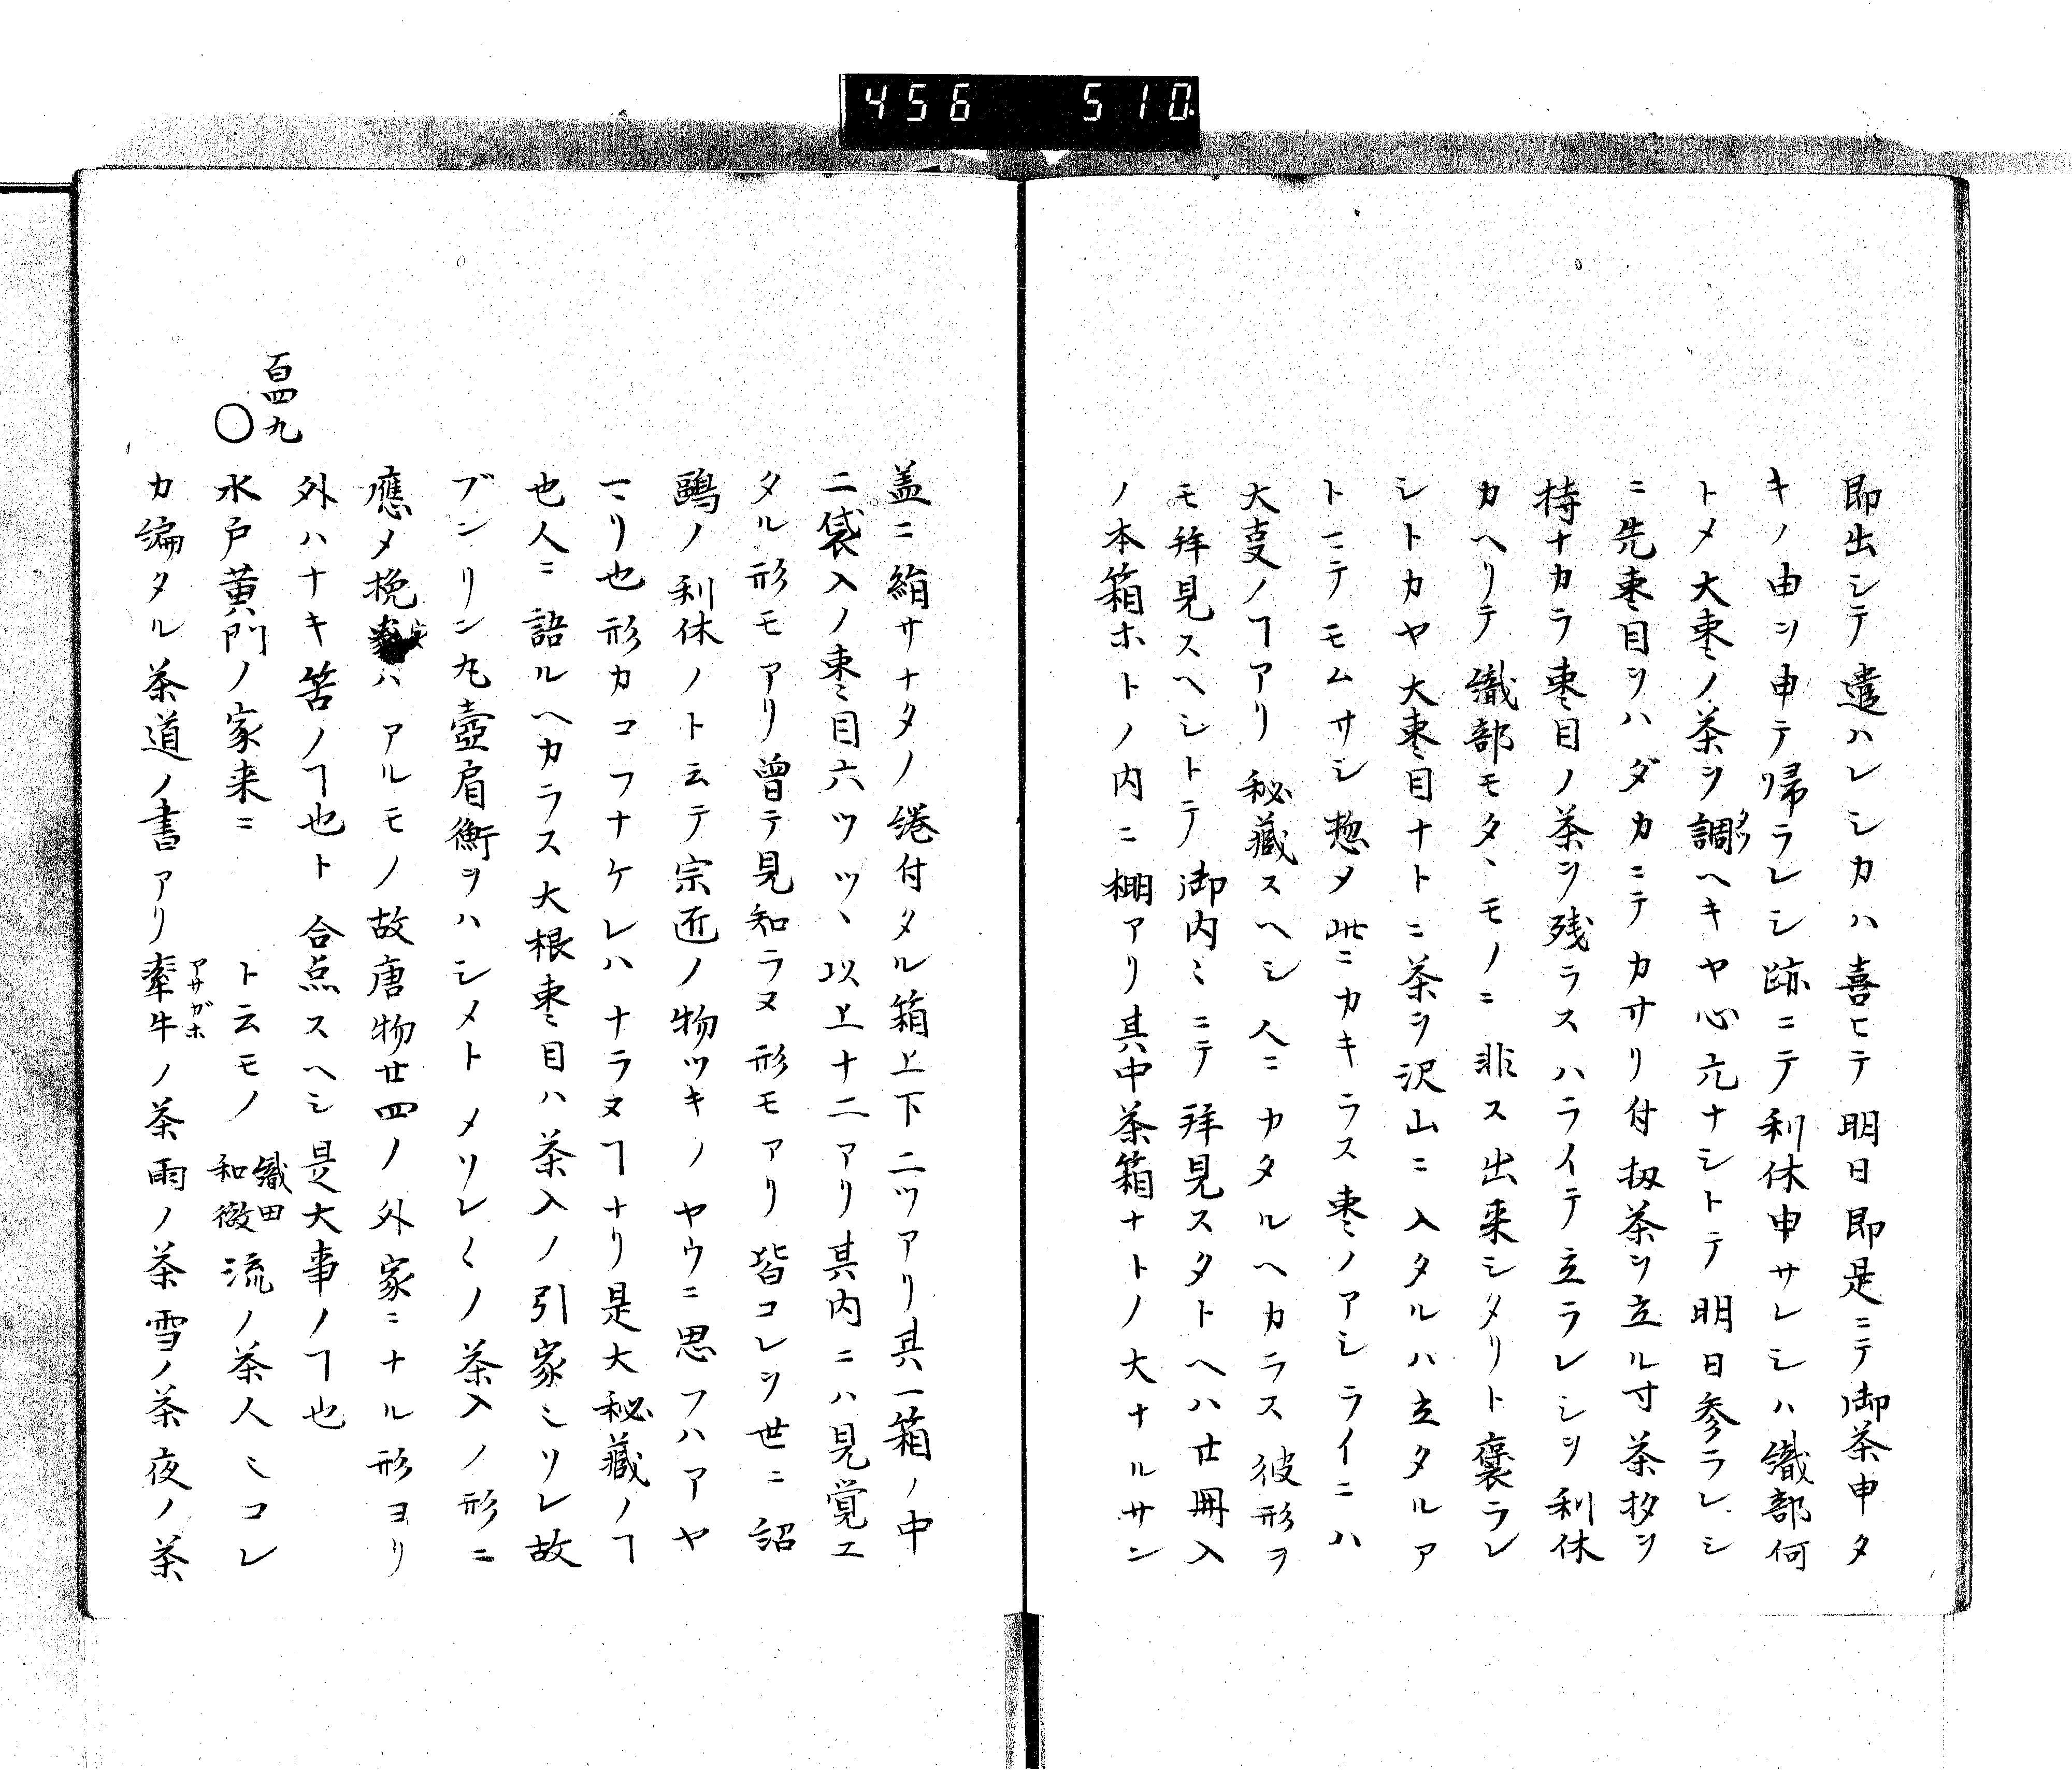 456 510.
即出シテ遣ハレシカハ喜ヒテ明日即是ニテ御茶申タ
キノ由ヲ申テ帰ラレシ跡ニテ利休申サレシハ織部何
トメ大棗ノ茶ヲ調ヘキヤ心元ナシトテ明日参ラレシ
ニ先棗目ヲハダカニテカサリ付扨茶ヲ立ル寸茶杓ヲ
持ナカラ棗目ノ茶ヲ残ラスハライテ立ラレシヲ利休
カヘリテ織部モタヽモノニ非ス出来シタリト褒ラレ
シトカヤ大棗目ナトニ茶ヲ沢山ニ入タルハ立タルア
トニテモムサシ惣メ此ニカキラス棗ノアシライニハ
大叓ノヿアリ秘蔵スヘシ人ニカタルヘカラス彼形ヲ
モ拝見スヘシトテ御内ミニテ拝見スタトヘハ廿冊入
ノ本箱ホトノ内ニ棚アリ其中茶箱ナトノ大ナルサン
盖ニ絹サナタノ綣付タル箱上下二ツアリ其一箱ノ中
ニ袋入ノ棗目六ツツヽ以上十二アリ其内ニハ見覚エ
タル形モアリ曽テ見知ラヌ形モアリ皆コレヲ世ニ紹
鷗ノ利休ノト云テ宗匠ノ物ツキノヤウニ思フハアヤ
マリ也形カコフナケレハナラヌヿナリ是大秘蔵ノヿ
也人ニ語ルヘカラス大根棗目ハ茶入ノ引家ミリレ故
ブンリン丸壺肩衝ヲハシメトメソレ〱ノ茶入ノ形ニ
應メ挽家ハアルモノ故唐物廿四ノ外家ニナル形ヨリ
外ハナキ筈ノヿ也ト合点スヘシ是大事ノヿ也
百四九
〇水戸黄門ノ家来ニ　　ト云モノ織田和徴流ノ茶人ミコレ
カ編タル茶道ノ書アリ牽牛アサガホノ茶雨ノ茶雪ノ茶夜ノ茶